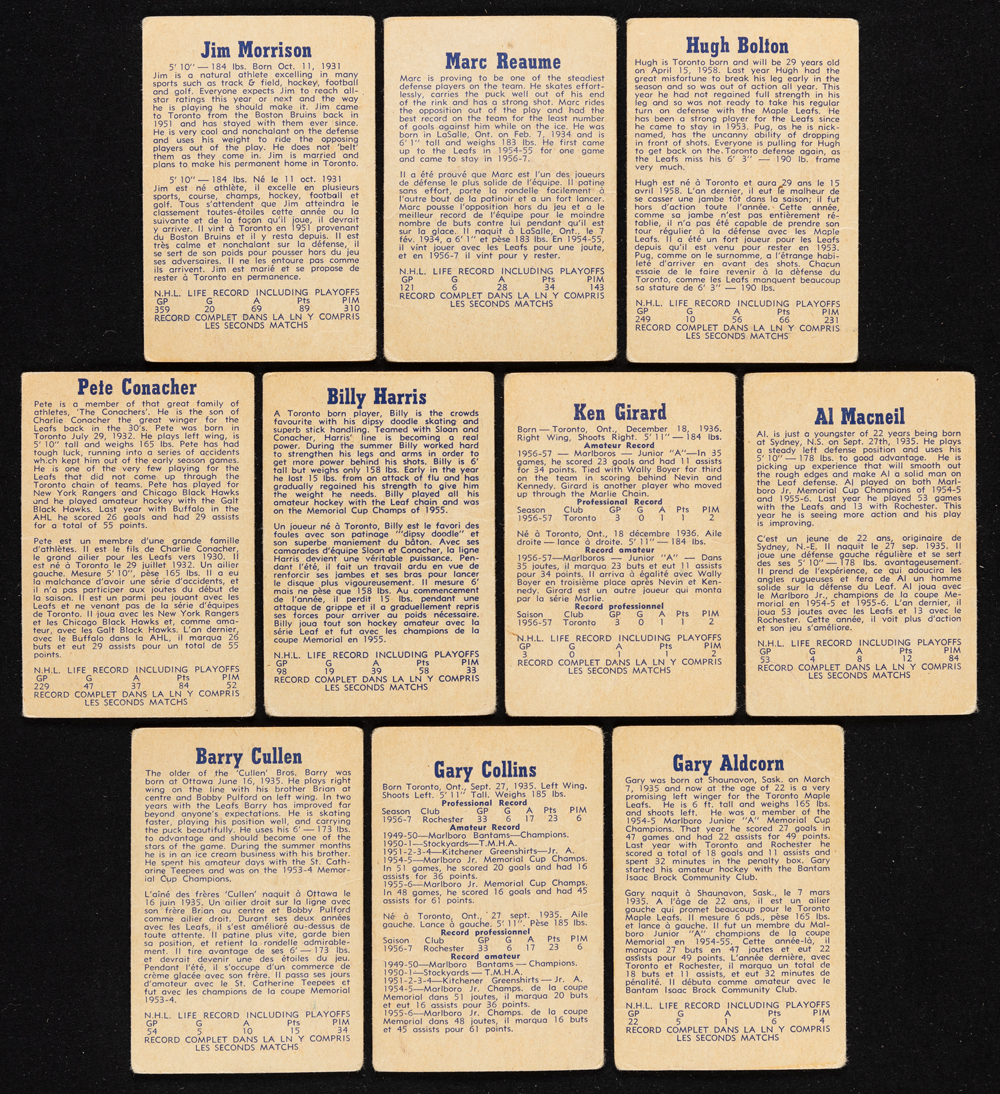 Jim Morrison
5' 10" — 184 lbs. Born Oct. 11, 1931
Jim is a natural athlete excelling in many
sports such as track & field, hockey, football
and golf. Everyone expects Jim to reach all-
star ratings this year or next and the way
he is playing he should make it. Jim came
to Toronto from the Boston Bruins back in
1951 and has stayed with them ever since.
He is very cool and nonchalant on the defense
and uses his weight to ride the opposing
players out of the play. He does not 'belt'
them as they come in. Jim is married and
plans to make his permanent home in Toronto.
5' 10" — 184 lbs. Né le 11 oct. 1931
Jim est né athlète, il excelle en plusieurs
sports, course, champs, hockey, football et
golf. Tous s'attendent que Jim atteindra le
classement toutes-étoiles cette année ou la
suivante et de la façon qu'il joue, il devrait
y arriver. Il vint à Toronto en 1951 provenant
du Boston Bruins et il y resta depuis. Il est
très calme et nonchalant sur la défense, il
se sert de son poids pour pousser hors du jeu
ses adversaires. Il ne les entoure pas comme
ils arrivent. Jim est marié et se propose de
rester à Toronto en permanence.
N.H.L. LIFE RECORD INCLUDING PLAYOFFS
GP G A Pts PIM
359 20 69 89 310
RECORD COMPLET DANS LA LN Y COMPRIS
LES SECONDS MATCHS
Marc Reaume
Marc is proving to be one of the steadiest
defense players on the team. He skates effort-
lessly, carries the puck well out of his end
of the rink and has a strong shot. Marc rides
the opposition out of the play and had the
best record on the team for the least number
of goals against him while on the ice. He was
born in LaSalle, Ont. on Feb. 7, 1934 and is
6' 1" tall and weighs 183 lbs. He first came
up to the Leafs in 1954-55 for one game
and came to stay in 1956-7.
Il a été prouvé que Marc est l'un des joueurs
de défense le plus solide de l'équipe. Il patine
sans effort, porte la rondelle facilement à
l'autre bout de la patinoir et a un fort lancer.
Marc pousse l'opposition hors du jeu et a le
meilleur record de l'équipe pour le moindre
nombre de buts contre lui pendant qu'il est
sur la glace. Il naquit à LaSalle, Ont., le 7
fév. 1934, a 6' 1" et pèse 183 lbs. En 1954-55,
il vint jouer avec les Leafs pour une joute,
et en 1956-7 il vint pour y rester.
N.H.L. LIFE RECORD INCLUDING PLAYOFFS
GP G A Pts PIM
121 6 28 34 143
RECORD COMPLET DANS LA LN Y COMPRIS
LES SECONDS MATCHS
Hugh Bolton
Hugh is Toronto born and will be 29 years old
on April 15, 1958. Last year Hugh had the
great misfortune to break his leg early in the
season and so was out of action all year. This
year he had not regained full strength in his
leg and so was not ready to take his regular
turn on defense with the Maple Leafs. He
has been a strong player for the Leafs since
he came to stay in 1953. Pug, as he is nick-
named, has the uncanny ability of dropping
in front of shots. Everyone is pulling for Hugh
to get back on the Toronto defense again, as
the Leafs miss his 6' 3" — 190 lb. frame
very much.
Hugh est né à Toronto et aura 29 ans le 15
avril 1958. L'an dernier, il eut le malheur de
se casser une jambe tôt dans la saison; il fut
hors d'action toute l'année. Cette année,
comme sa jambe n'est pas entièrement ré-
tablie, il n'a pas été capable de prendre son
tour régulier à la défense avec les Maple
Leafs. Il a été un fort joueur pour les Leafs
depuis qu'il est venu pour rester en 1953.
Pug, comme on le surnomme, a l'étrange habi-
leté d'arriver en avant des shots. Chacun
essaie de le faire revenir à la défense du
Toronto, comme les Leafs manquent beaucoup
sa stature de 6' 3" — 190 lbs.
N.H.L. LIFE RECORD INCLUDING PLAYOFFS
GP G A Pts PIM
249 10 56 66 231
RECORD COMPLET DANS LA LN Y COMPRIS
LES SECONDS MATCHS
Pete Conacher
Pete is a member of that great family of
athletes, 'The Conachers'. He is the son of
Charlie Conacher the great winger for the
Leafs back in the 30's. Pete was born in
Toronto July 29, 1932. He plays left wing, is
5' 10" tall and weighs 165 lbs. Pete has had
tough luck, running into a series of accidents
which kept him out of the early season games.
He is one of the very few playing for the
Leafs that did not come up through the
Toronto chain of teams. Pete has played for
New York Rangers and Chicago Black Hawks
and he played amateur hockey with the Galt
Black Hawks. Last year with Buffalo in the
AHL he scored 26 goals and had 29 assists
for a total of 55 points.
Pete est un membre d'une grande famille
d'athlètes. Il est le fils de Charlie Conacher,
le grand ailier pour les Leafs vers 1930. Il
est né à Toronto le 29 juillet 1932. Un ailier
gauche. Mesure 5' 10", pèse 165 lbs. Il a eu
la malchance d'avoir une série d'accidents, et
il n'a pas participer aux joutes du début de
la saison. Il est un parmi peu jouant avec les
Leafs et ne venant pas de la série d'équipes
de Toronto. Il joua avec les New York Rangers
et les Chicago Black Hawks et, comme ama-
teur, avec les Galt Black Hawks. L'an dernier,
avec le Buffalo dans la AHL, il marqua 26
buts et eut 29 assists pour un total de 55
points.
N.H.L. LIFE RECORD INCLUDING PLAYOFFS
GP G A Pts PIM
229 47 37 84 52
RECORD COMPLET DANS LA LN Y COMPRIS
LES SECONDS MATCHS
Billy Harris
A Toronto born player, Billy is the crowds
favourite with his dipsy doodle skating and
superb stick handling. Teamed with Sloan and
Conacher, Harris' line is becoming a real
power. During the summer Billy worked hard
to strengthen his legs and arms in order to
get more power behind his shots. Billy is 6'
tall but weighs only 158 lbs. Early in the year
he lost 15 lbs. from an attack of flu and has
gradually regained his strength to give him
the weight he needs. Billy played all his
amateur hockey with the Leaf chain and was
on the Memorial Cup Champs of 1955.
Un joueur né à Toronto, Billy est le favori des
foules avec son patinage '"dipsy doodle" et
son superbe maniement du bâton. Avec ses
camarades d'équipe Sloan et Conacher, la ligne
Harris devient une véritable puissance. Pen-
dant l'été, il fait un travail ardu en vue de
renforcir ses jambes et ses bras pour lancer
le disque plus vigoureusement. Il mesure 6'
mais ne pèse que 158 lbs. Au commencement
de l'année, il perdit 15 lbs. pendant une
attaque de grippe et il a graduellement repris
ses forces pour arriver au poids nécessaire.
Billy joua tout son hockey amateur avec la
série Leaf et fut avec les champions de la
coupe Memorial en 1955.
N.H.L. LIFE RECORD INCLUDING PLAYOFFS
GP G A Pts PIM
98 19 39 58 33
RECORD COMPLET DANS LA LN Y COMPRIS
LES SECONDS MATCHS
Ken Girard
Born — Toronto, Ont., December 18, 1936.
Right Wing, Shoots Right. 5' 11" — 184 lbs.
Amateur Record
1956-57 — Marlboros — Junior "A"—In 35
games, he scored 23 goals and had 11 assists
for 34 points. Tied with Wally Boyer for third
on the team in scoring behind Nevin and
Kennedy. Girard is another player who moved
up through the Marlie Chain.
Professional Record
Season Club GP G A Pts PIM
1956-57 Toronto 3 0 1 1 2
Né à Toronto, Ont., 18 décembre 1936. Aile
droite — lance à droite. 5' 11" — 184 lbs.
Record amateur
1956-57—Marlboros — Junior "A" — Dans
35 joutes, il marqua 23 buts et eut 11 assists
pour 34 points. Il arriva à égalité avec Wally
Boyer en troisième place après Nevin et Ken-
nedy. Girard est un autre joueur qui monta
par la série Marlie.
Record professionnel
Saison Club GP G A Pts PIM
1956-57 Toronto 3 0 1 1 2
N.H.L. LIFE RECORD INCLUDING PLAYOFFS
GP G A Pts PIM
3 0 1 1 2
RECORD COMPLET DANS LA LN Y COMPRIS
LES SECONDS MATCHS
Al Macneil
Al. is just a youngster of 22 years being born
at Sydney, N.S. on Sept. 27th, 1935. He plays
a steady left defense position and uses his
5' 10" — 178 lbs. to good advantage. He is
picking up experience that will smooth out
the rough edges and make Al a solid man on
the Leaf defense. Al played on both Marl-
boro Jr. Memorial Cup Champions of 1954-5
and 1955-6. Last year he played 53 games
with the Leafs and 13 with Rochester. This
year he is seeing more action and his play
is improving.
C'est un jeune de 22 ans, originaire de
Sydney, N.-E. Il naquit le 27 sep. 1935. Il
joue une défense gauche régulière et se sert
des ses 5' 10" — 178 lbs. avantageusement.
Il prend de l'expérience, ce qui adoucira les
angles rugueuses et fera de Al un homme
solide sur la défense du Leaf. Al joua avec
le Marlboro Jr., champions de la coupe Me-
morial en 1954-5 et 1955-6. L'an dernier, il
joua 53 joutes avec les Leafs et 13 avec le
Rochester. Cette année, il voit plus d'action
et son jeu s'améliore.
N.H.L. LIFE RECORD INCLUDING PLAYOFFS
GP G A Pts PIM
53 4 8 12 84
RECORD COMPLET DANS LA LN Y COMPRIS
LES SECONDS MATCHS
Barry Cullen
The older of the 'Cullen' Bros. Barry was
born at Ottawa June 16, 1935. He plays right
wing on the line with his brother Brian at
centre and Bobby Pulford on left wing. In two
years with the Leafs Barry has improved far
beyond anyone's expectations. He is skating
faster, playing his position well, and carrying
the puck beautifully. He uses his 6' — 173 lbs.
to advantage and should become one of the
stars of the game. During the summer months
he is in an ice cream business with his brother.
He spent his amateur days with the St. Cath-
arine Teepees and was on the 1953-4 Memor-
ial Cup Champions.
L'aîné des frères 'Cullen' naquit à Ottawa le
16 juin 1935. Un ailier droit sur la ligne avec
son frère Brian au centre et Bobby Pulford
comme ailier droit. Durant ses deux années
avec les Leafs, il s'est amélioré au-dessus de
toute attente. Il patine plus vite, garde bien
sa position, et retient la rondelle admirable-
ment. Il tire avantage de ses 6' — 173 lbs.
et devrait devenir une des étoiles du jeu.
Pendant l'été, il s'occupe d'un commerce de
crème glacée avec son frère. Il passa ses jours
d'amateur avec le St. Catherine Teepees et
fut avec les champions de la coupe Memorial
1953-4.
N.H.L. LIFE RECORD INCLUDING PLAYOFFS
GP G A Pts PIM
54 5 10 15 34
RECORD COMPLET DANS LA LN Y COMPRIS
LES SECONDS MATCHS
Gary Collins
Born Toronto, Ont., Sept. 27, 1935. Left Wing.
Shoots Left. 5' 11" Tall. Weighs 185 lbs.
Professional Record
Season Club GP G A Pts PIM
1956-7 Rochester 33 6 17 23 6
Amateur Record
1949-50—Marlboro Bantams—Champions.
1950-1—Stockyards—T.M.H.A.
1951-2-3-4—Kitchener Greenshirts—Jr. A.
1954-5—Marlboro Jr. Memorial Cup Champs.
In 51 games, he scored 20 goals and had 16
assists for 36 points.
1955-6—Marlboro Jr. Memorial Cup Champs.
In 48 games, he scored 16 goals and had 45
assists for 61 points.
Né à Toronto, Ont., 27 sept. 1935. Aile
gauche. Lance à gauche. 5' 11". Pèse 185 lbs.
Record professionel
Saison Club GP G A Pts PIM
1956-7 Rochester 33 6 17 23 6
Record amateur
1949-50—Marlboro Bantams — Champions.
1950-1—Stockyards — T.M.H.A.
1951-2-3-4—Kitchener Greenshirts — Jr. A.
1954-5—Marlboro Jr. Champs. de la coupe
Memorial dans 51 joutes, il marqua 20 buts
et eut 16 assists pour 36 points.
1955-6—Marlboro Jr. Champs. de la coupe
Memorial dans 48 joutes, il marqua 16 buts
et 45 assists pour 61 points.
Gary Aldcorn
Gary was born at Shaunavon, Sask. on March
7, 1935 and now at the age of 22 is a very
promising left winger for the Toronto Maple
Leafs. He is 6 ft. tall and weighs 165 lbs.
and shoots left. He was a member of the
1954-5 Marlboro Junior "A" Memorial Cup
Champions. That year he scored 27 goals in
47 games and had 22 assists for 49 points.
Last year with Toronto and Rochester he
scored a total of 18 goals and 11 assists and
spent 32 minutes in the penalty box. Gary
started his amateur hockey with the Bantam
Isaac Brock Community Club.
Gary naquit à Shaunavon, Sask., le 7 mars
1935. A l'âge de 22 ans, il est un ailier
gauche qui promet beaucoup pour le Toronto
Maple Leafs. Il mesure 6 pds., pèse 165 lbs.
et lance à gauche. Il fut un membre du Mal-
boro Junior "A" champions de la coupe
Memorial en 1954-55. Cette année-là, il
marqua 27 buts en 47 joutes et eut 22
assists pour 49 points. L'année dernière, avec
Toronto et Rochester, il marqua un total de
18 buts et 11 assists, et eut 32 minutes de
pénalité. Il débuta comme amateur avec le
Bantam Isaiac Brock Community Club.
N.H.L. LIFE RECORD INCLUDING PLAYOFFS
GP G A Pts PIM
22 5 1 6 4
RECORD COMPLET DANS LA LN Y COMPRIS
LES SECONDS MATCHS